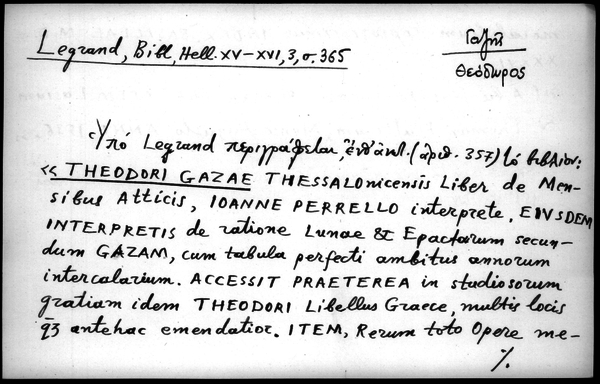 Legrand, Bibl, Hell. XV–XVI, 3, σ. 365
Γαζῆς
Θεόδωρος
Ὑπο Legrand περιγράφεται, ἔνθ' ἀνωτ. (ἀριθ. 357) τό βιβλίον:
« THEODORI GAZAE THESSALonicensis Liber de Men-
sibus Atticis, IOANNE PERRELLO interprete, EIVSDEM
INTERPRETIS de ratione Lunae & Epactarum secun-
dum GAZAM, cum tabula perfecti ambitus annorum
intercalarium. ACCESSIT PRAETEREA in studiosorum
gratiam idem THEODORI Libellus Graece, multis locis
q3 antehac emendatior. ITEM, Rerum toto Opere me-
%.